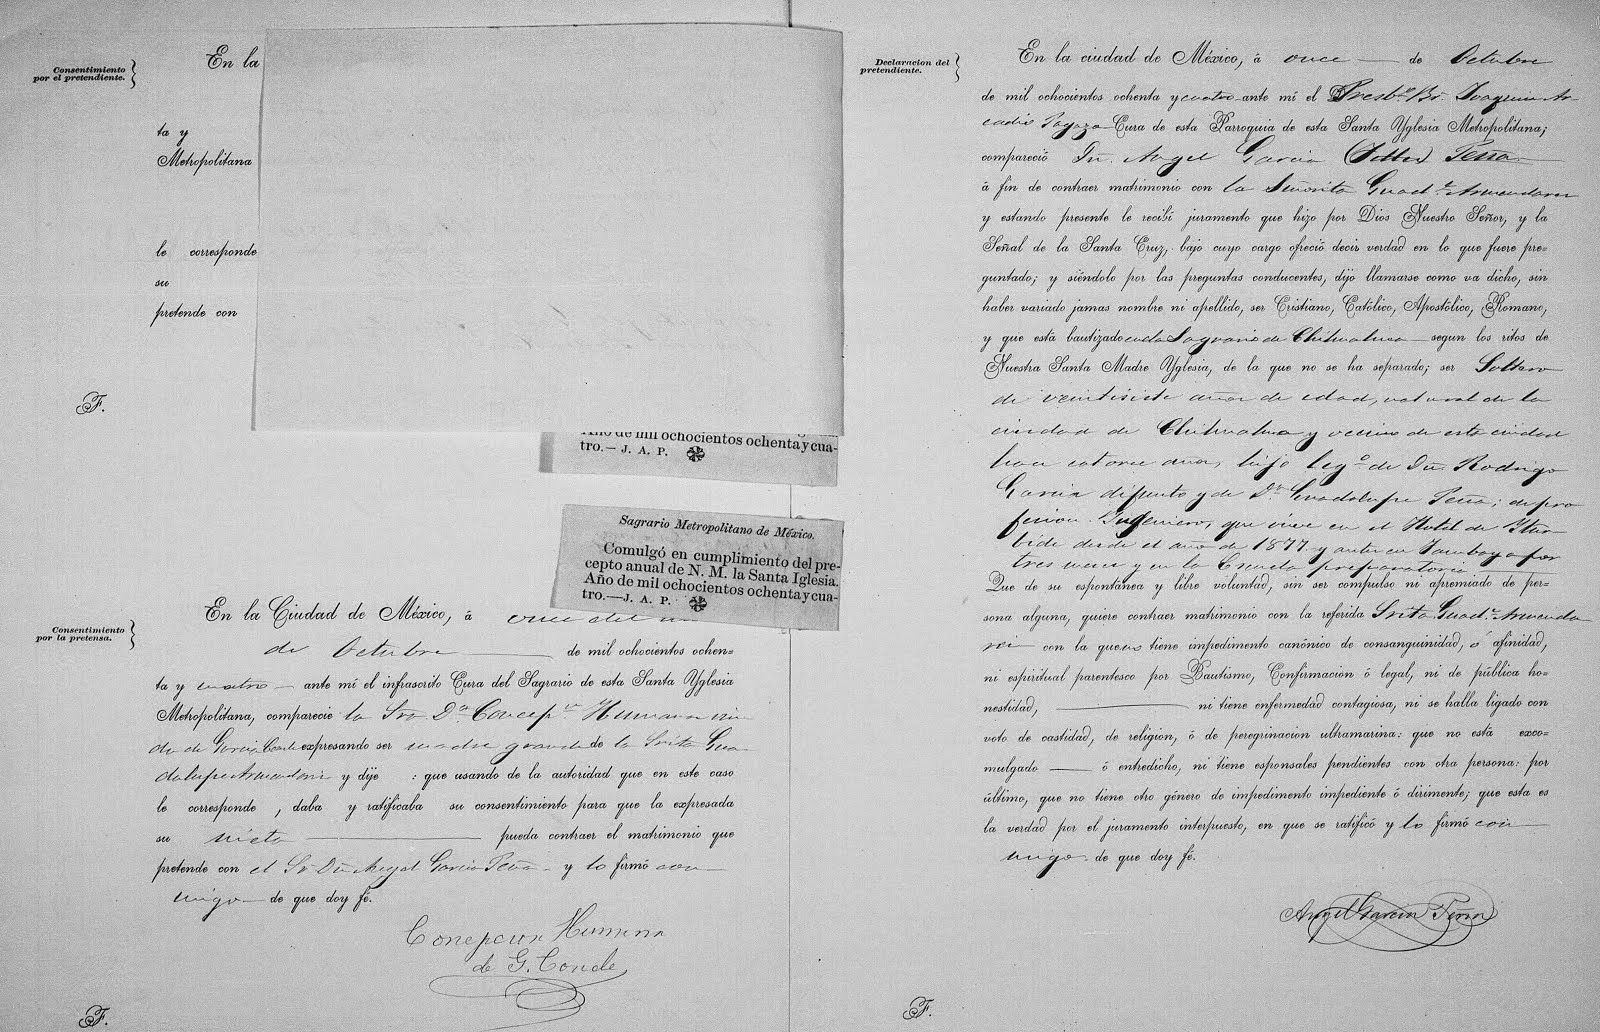 Consentimiento
por el pretendiente.
En la
ta y
Metropolitana
le corresponde
su
pretende con
F.
Año de mil ochocientos ochenta y cua-
tro.— J. A. P.
Sagrario Metropolitano de México.
Comulgó en cumplimiento del pre-
cepto anual de N. M. la Santa Iglesia.
Año de mil ochocientos ochenta y cua-
tro.—J. A. P.
Consentimiento
por la pretensa.
En la Ciudad de México, á once del
de Octubre de mil ochocientos ochen=
ta y cuatro ante mí el infrascrito Cura del Sagrario de esta Santa Yglesia
Metropolitana, comparecio la Sra. Da. Concepn. Humana viu
da de Garcia Conde expresando ser madre grande de la Srita Gua
dalupe Armendariz y dijo : que usando de la autoridad que en este caso
le corresponde , daba y ratificaba su consentimiento para que la expresada
su nieta pueda contraer el matrimonio que
pretende con el Sr Dn Angel Garcia Peña y lo firmó con
migo de que doy fé.
Concepcion Humana
de G. Conde
F.
Declaracion del
pretendiente.
En la ciudad de México, á once de Octubre
de mil ochocientos ochenta y cuatro ante mí el Presbo. Br. Joaquin Ar
cadio Pagaza Cura de esta Parroquia de esta Santa Yglesia Metropolitana;
compareció Dn. Angel Garcia Peña
á fin de contraer matrimonio con la Señorita Guade. Armendariz
y estando presente le recibí juramento que hizo por Dios Nuestro Señor, y la
Señal de la Santa Cruz, bajo cuyo cargo ofreció decir verdad en lo que fuere pre=
guntado; y siéndolo por las preguntas conducentes, dijo llamarse como va dicho, sin
haber variado jamas nombre ni apellido, ser Cristiano, Católico, Apostólico, Romano,
y que está bautizado en el Sagrario de Chihuahua segun los ritos de
Nuestra Santa Madre Yglesia, de la que no se ha separado; ser Soltero
de veintisiete años de edad, natural de la
ciudad de Chihuahua y vecino de esta ciudad
hace catorce años, hijo lego. de Dn. Rodrigo
Garcia difunto y de Da. Guadalupe Peña; de pro
fesion Ingeniero, que vive en el Hotel de Ytur
bide desde el año de 1877 y antes en Tacubaya por
tres meses y en la Escuela preparatoria
Que de su espontánea y libre voluntad, sin ser compulso ni apremiado de per=
sona alguna, quiere contraer matrimonio con la referida Srita Guade. Armenda
riz con la que no tiene impedimento canónico de consanguinidad, ó afinidad,
ni espiritual parentesco por Bautismo, Confirmacion ó legal, ni de pública ho=
nestidad, ni tiene enfermedad contagiosa, ni se halla ligado con
voto de castidad, de religion, ó de peregrinacion ultramarina: que no está exco=
mulgado ó entredicho, ni tiene esponsales pendientes con otra persona: por
último, que no tiene otro género de impedimento impediente ó dirimente; que esta es
la verdad por el juramento interpuesto, en que se ratificó y lo firmó con
migo de que doy fé.
Angel Garcia Peña
F.